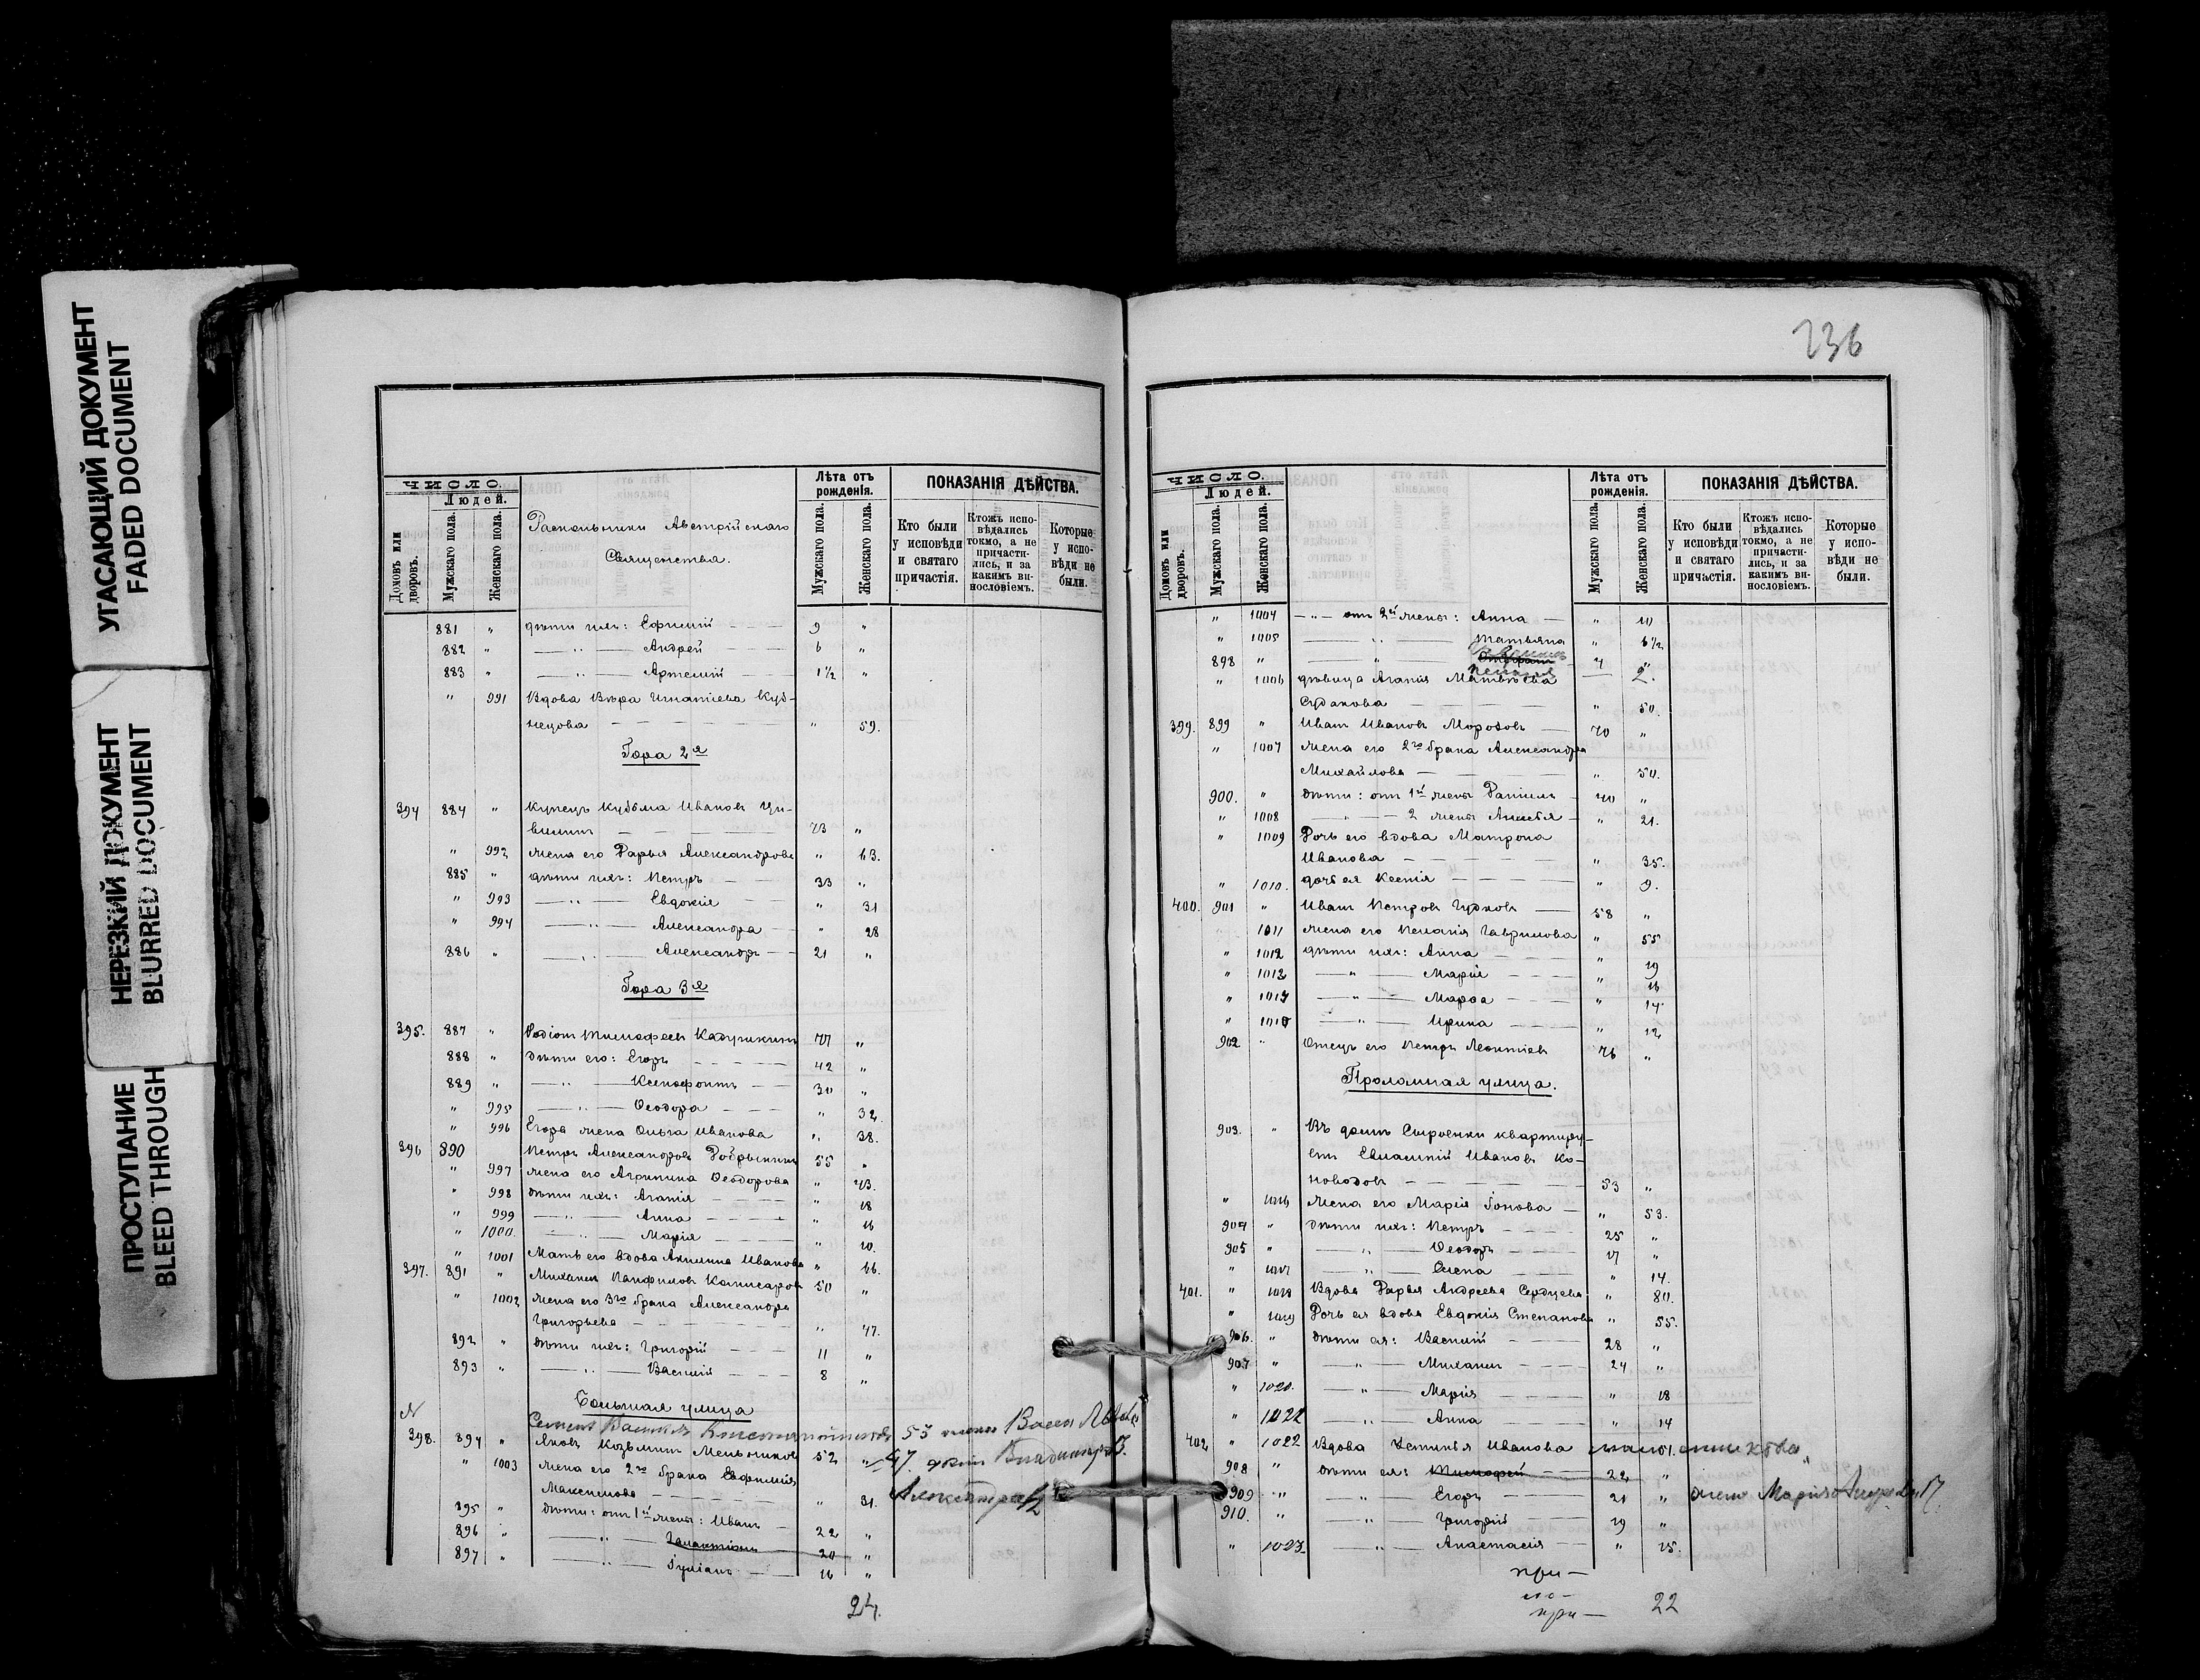 УГАСАЮЩИЙ ДОКУМЕНТ
FADED DOCUMENT
НЕРЕЗКИЙ ДОКУМЕНТ
BLURRED DOCUMENT
ПРОСТУПАНИЕ
BLEED THROUGH
ЧИСЛО.
Людей.
Домовъ или дворовъ.
Мужскаго пола.
Женскаго пола.
Раскольники Австрійскаго
Священства.
Лѣта отъ рожденія.
Мужскаго пола.
Женскаго пола.
ПОКАЗАНІЯ ДѢЙСТВА.
Кто были у исповѣди и святаго причастія.
Ктожъ исповѣдались токмо, а не причастились, и за какимъ винословіемъ.
Которые у исповѣди не были.
881 " дѣти ихъ: Ефимій 9 "
882 " Андрей 6 "
883 " Артемій 1½ "
" 991 Вдова Вѣра Игнатіева Куз-
нецова " 59.
Гора 2я
394 884 " Купецъ Кузьма Ивановъ Ци-
вилинъ 73 "
" 992 жена его Дарья Александрова " 63.
885 " дѣти ихъ: Петръ 33 "
" 993 Евдокія " 31
" 994 Александра " 28
886 " Александръ 21 "
Гора 3я
395. 887 " Родіонъ Тимофеевъ 77 "
888 " дѣти его: Егоръ 42 "
889 " Ксенофонтъ 30 "
" 995 Ѳеодора " 32
" 996 Егора жена Ольга Иванова " 38.
396 890 Петръ Александровъ Добрынинъ 55 "
" 997 жена его Агрипина Ѳеодорова " 43.
" 998 дѣти ихъ: Агапія " 18
" 999 Анна " 16
" 1000 Марія " 10.
" 1001 Мать его вдова Акилина Иванова " 66.
397. 891 " Михаилъ Панфиловъ Комисаровъ 50 "
" 1002 жена его 3го брака Александра
Григорьева " 47.
892 " дѣти ихъ: Григорій 11 "
893 " Василій 8 "
Большая улица
N Семенъ Васильевъ 55 жена
398. 894 " Яковъ Козьминъ Мельниковъ 52 " 47. дѣти Владимиръ
" 1003 жена его 2го брака Евфимія
Максимова " 31. Александра
895 " дѣти: отъ 1й жены: Иванъ 22 "
896 " Галактіонъ 20 "
897 " Іуліанъ 16 "
24.
236
ЧИСЛО.
Людей.
Домовъ или дворовъ.
Мужскаго пола.
Женскаго пола.
Лѣта отъ рожденія.
Мужскаго пола.
Женскаго пола.
ПОКАЗАНІЯ ДѢЙСТВА.
Кто были у исповѣди и святаго причастія.
Ктожъ исповѣдались токмо, а не причастились, и за какимъ винословіемъ.
Которые у исповѣди не были.
" 1004 отъ 2й жены: Анна " 10
" 1005 Татьяна " 6½
898 " 4 "
Пелагія 2.
" 1006 дѣвица Агапія Матвѣева
Судакова " 50.
399. 899 " Иванъ Ивановъ Морозовъ 70 "
" 1007 жена его 2го брака Александра
Михайлова " 50.
900. " дѣти: отъ 1й жены Даніилъ 40 "
" 1008 2 жены " 21.
" 1009 Дочь его вдова Матрона
Иванова " 35.
" 1010. дочь ея Ксенія " 9.
400. 901 " Иванъ Петровъ Гудковъ 58 "
1011 жена его Пелагія Гаврилова " 55
" 1012 дѣти ихъ: Анна " 19
" 1013 Марія " 16
" 1014 Марѳа " 14
" 1015 Ирина " 12
902 " Отецъ его Петръ Леонтіев 76 "
Проломная улица.
903. " Въ домѣ Сыроенки квартиру-
етъ Евлампій Ивановъ Ко-
новодовъ 53 "
" 1016 жена его Марія Іонова " 53.
904 " дѣти ихъ: Петръ 25 "
905 " Ѳеодоръ 17 "
" 1017 Елена " 14.
401. " 1018 Вдова Дарья Андреева Сердцева " 80.
" 1019 Дочь ея вдова Евдокія Степанова " 55.
906. " дѣти ея: Василій 28 "
907 " Михаилъ 24 "
" 1020. Марія " 18
" 1022 Анна " 14
402 " 1022 Вдова Устинья Иванова 51.
908 " дѣти ея: Тимофей 22 "
909 " Егоръ 21 " жена Марія
910. " Григорій 19 "
" 1023 Анастасія " 15.
при—
при— 22